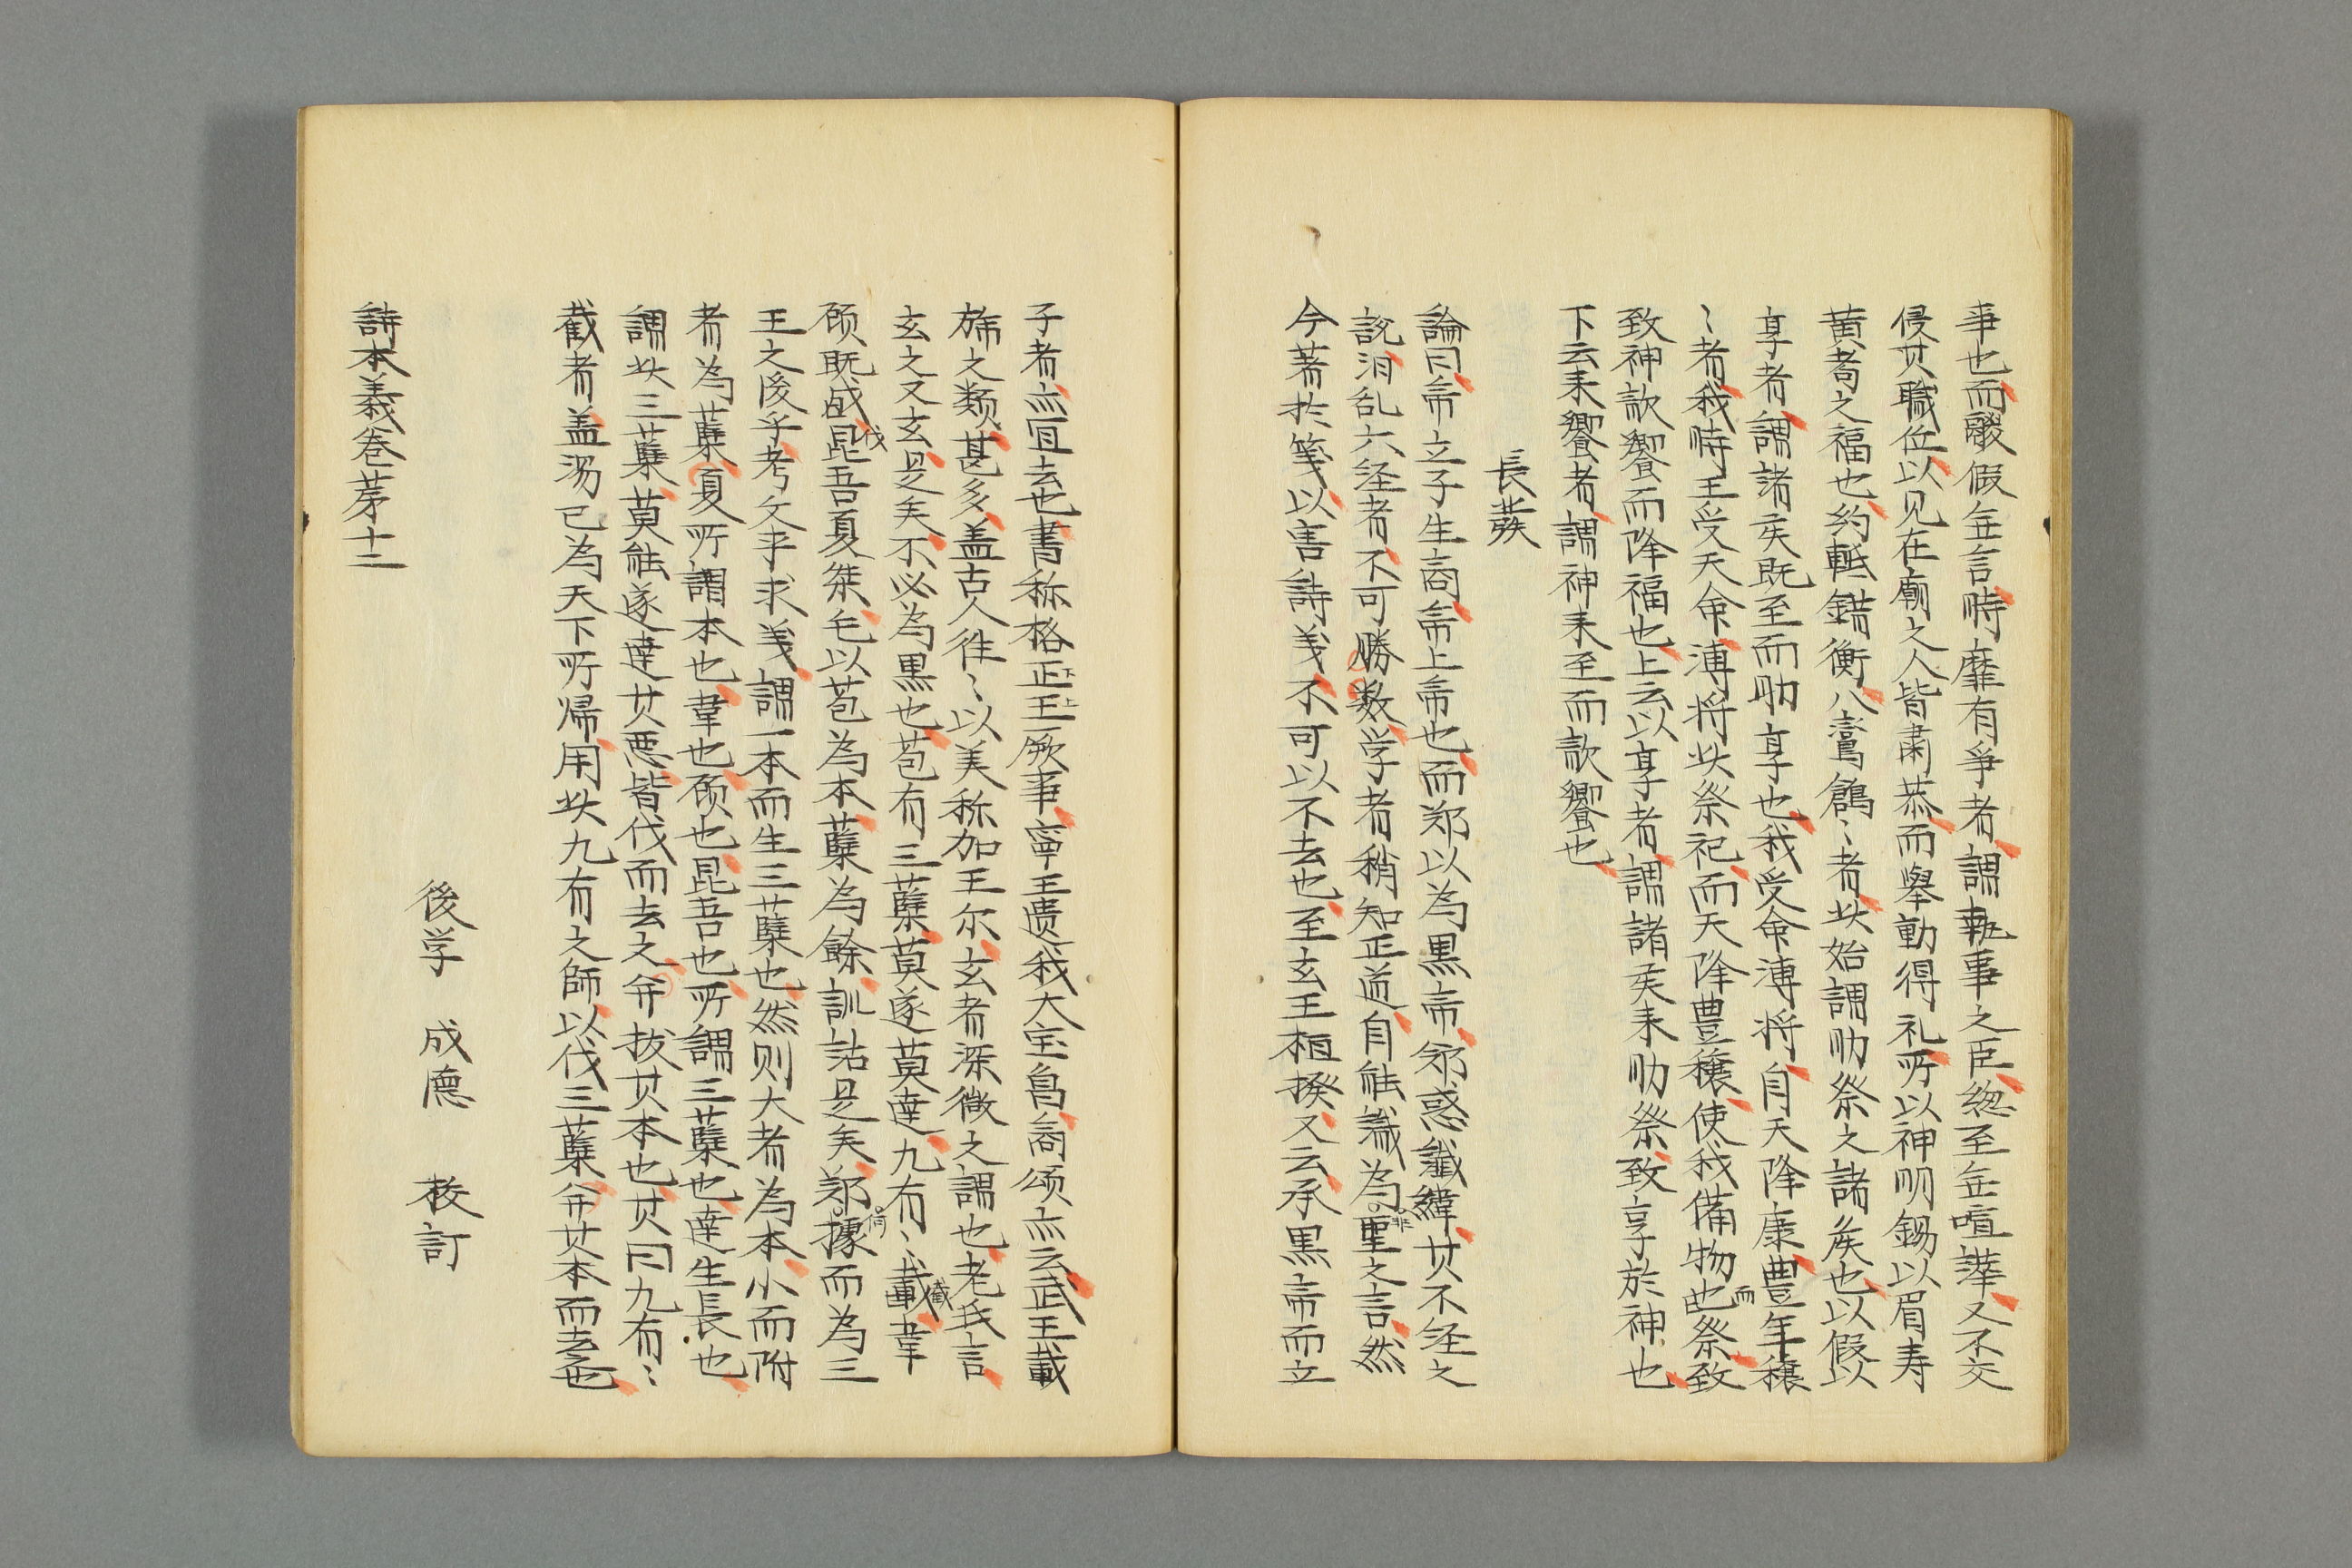 事也而鬷假無言時靡有爭者謂執事之臣緫至無喧譁又不交
侵其職位以见在廟之人皆肅恭而舉動得礼所以神明錫以眉寿
黄耇之福也約軧錯衡八鸞鶬〻者此始謂助祭之諸矦也以假以
享者謂諸矦既至而助享也我受命溥将自天降康豊年穰
〻者我時王受天命溥将此祭祀而天降豊穰使我備物也而祭致
致神歆饗而降福也上云以享者謂諸矦来助祭致享於神也
下云来饗者謂神来至而歆饗也
長發
論曰帝立子生商帝上帝也而郑以為黒帝郑惑讖緯其不経之
説汨乱六経者不可勝数学者稍知正道自能識為非聖之言然
今著扵箋以害詩義不可以不去也至玄王桓撥又云承黒帝而立
子者亦宜去也書称格正王厥事寧王遗我大宝㠀商颂亦云武王載
旆之類甚多盖古人徃〻以美称加王尔玄者深微之謂也老氏言
玄之又玄是矣不必為黒也苞有三蘖莫遂莫達九有〻截韋
顾既伐昆吾夏桀毛以苞為本蘖為餘訓詁是矣郑何據而為三
王之後乎考文求義謂一本而生三蘖也然则大者為本小而附
者為蘖夏所謂本也韋也顾也昆吾也所謂三蘖也達生長也
謂此三蘖莫能遂達其惡皆伐而去之并拔其本也其曰九有〻
截者盖湯已為天下所帰用此九有之師以伐三蘖并其本而去也
後学 成德 校訂
詩本義卷苐十二